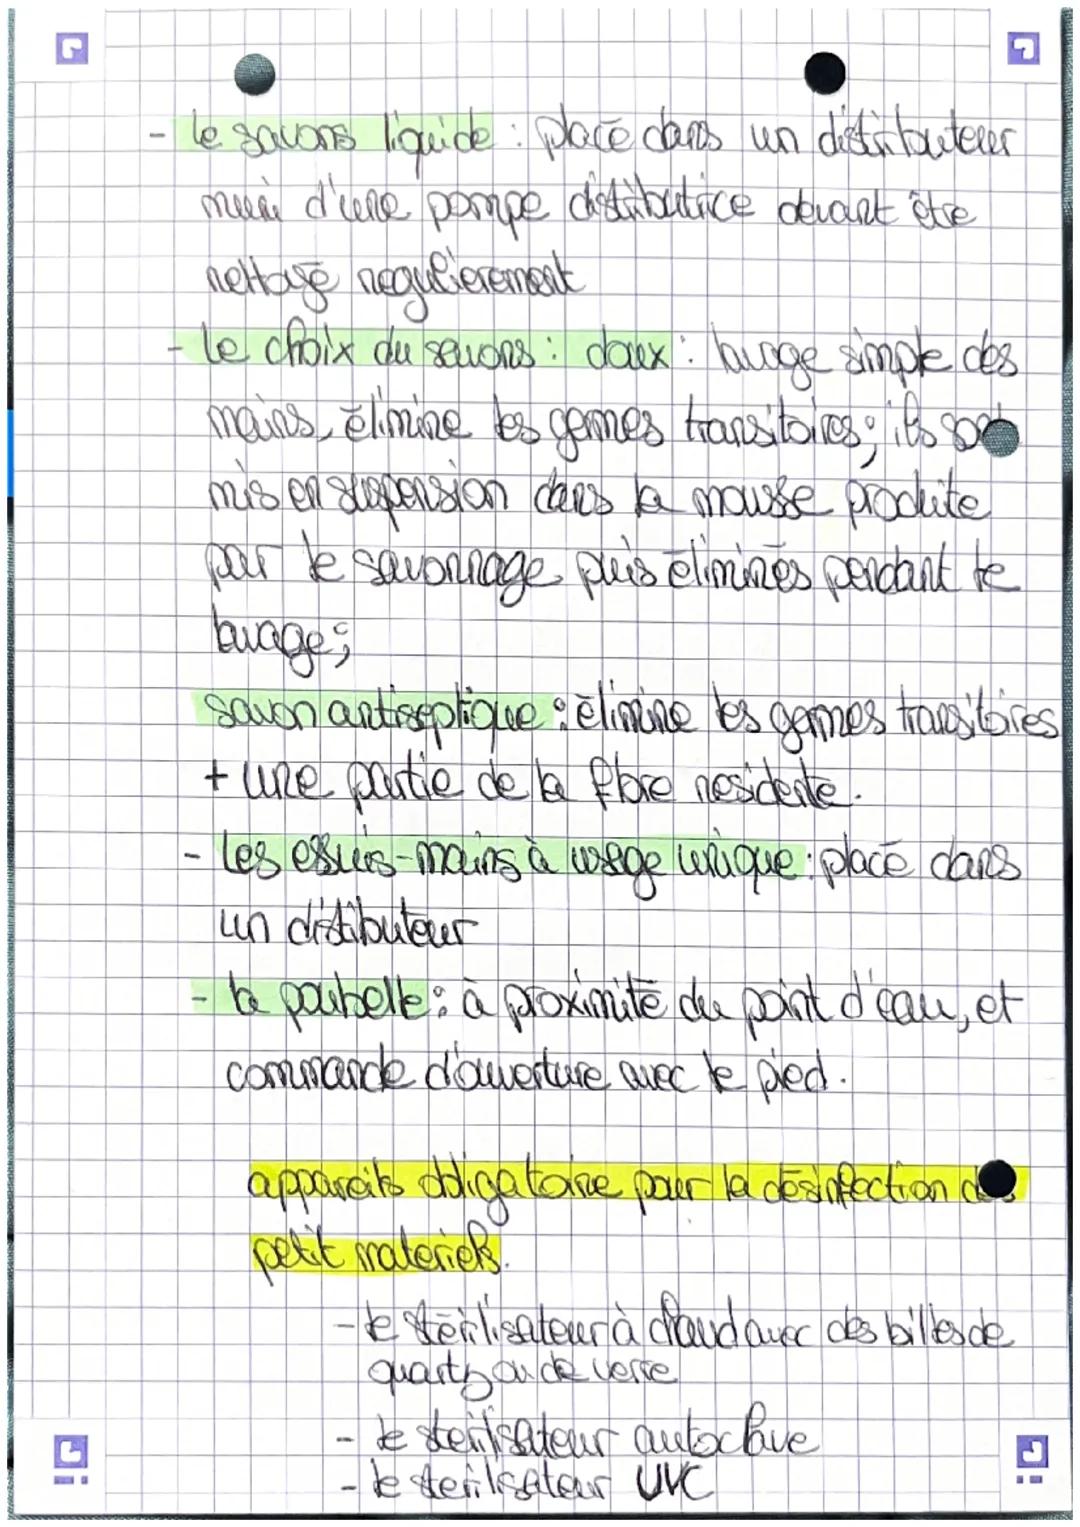 - le savons liquide : placé dans un distributeur
muni d'une pompe distributrice devant être
nettoyé regulierement
- Le choix du savons : doux : lavage simple des
mains, élimine les germes transitoires ; ils sont
mis en suspension dans la mousse produite
par le savonnage puis éliminés pendant le
lavage ;
savon antiseptique : élimine les germes transitoires
+ une partie de la flore residente.
- Les essuis-mains à usage unique : placé dans
un distibuteur
- la poubelle : à proximité du point d'eau, et
commande d'ouverture avec le pied.
appareils obligatoire pour la désinfection des
petit materiels.
- le stérilisateur à chaud avec des billes de
quartz ou de verre
- le sterilisateur autoclave
- le sterilisateur UVC